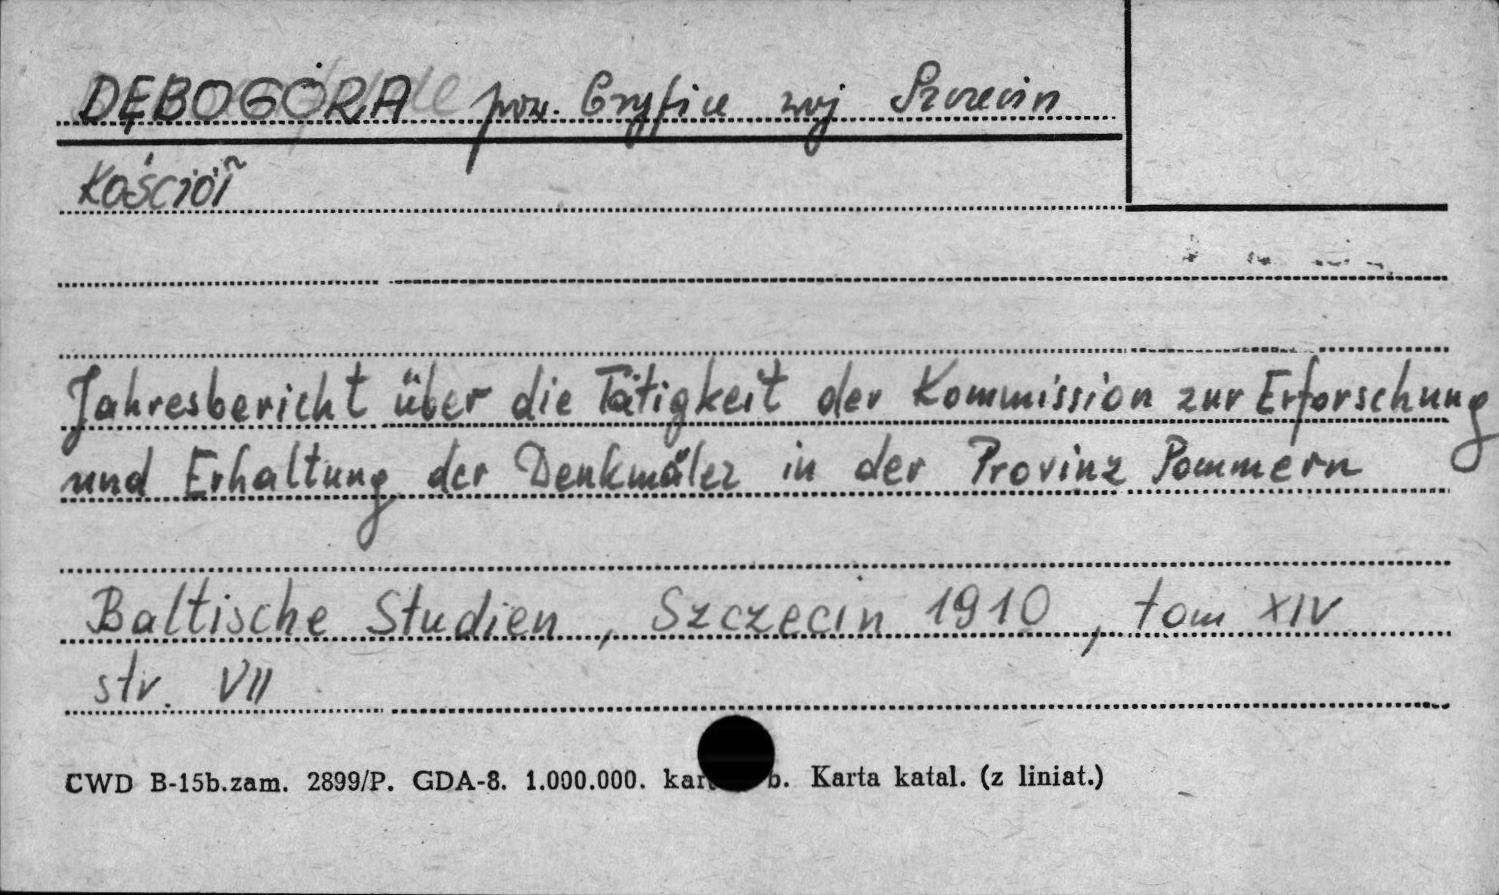 DĘBOGÓRA pow. Gryfice woj Szczecin
Kościół
Jahresbericht über die Tätigkeit der Kommission zur Erforschung
und Erhaltung der Denkmäler in der Provinz Pommern
Baltische Studien, Szczecin 1910, tom XIV
str. VII
CWD B-15b.zam. 2899/P. GDA-8. 1.000.000. kar b. Karta katal. (z liniat.)